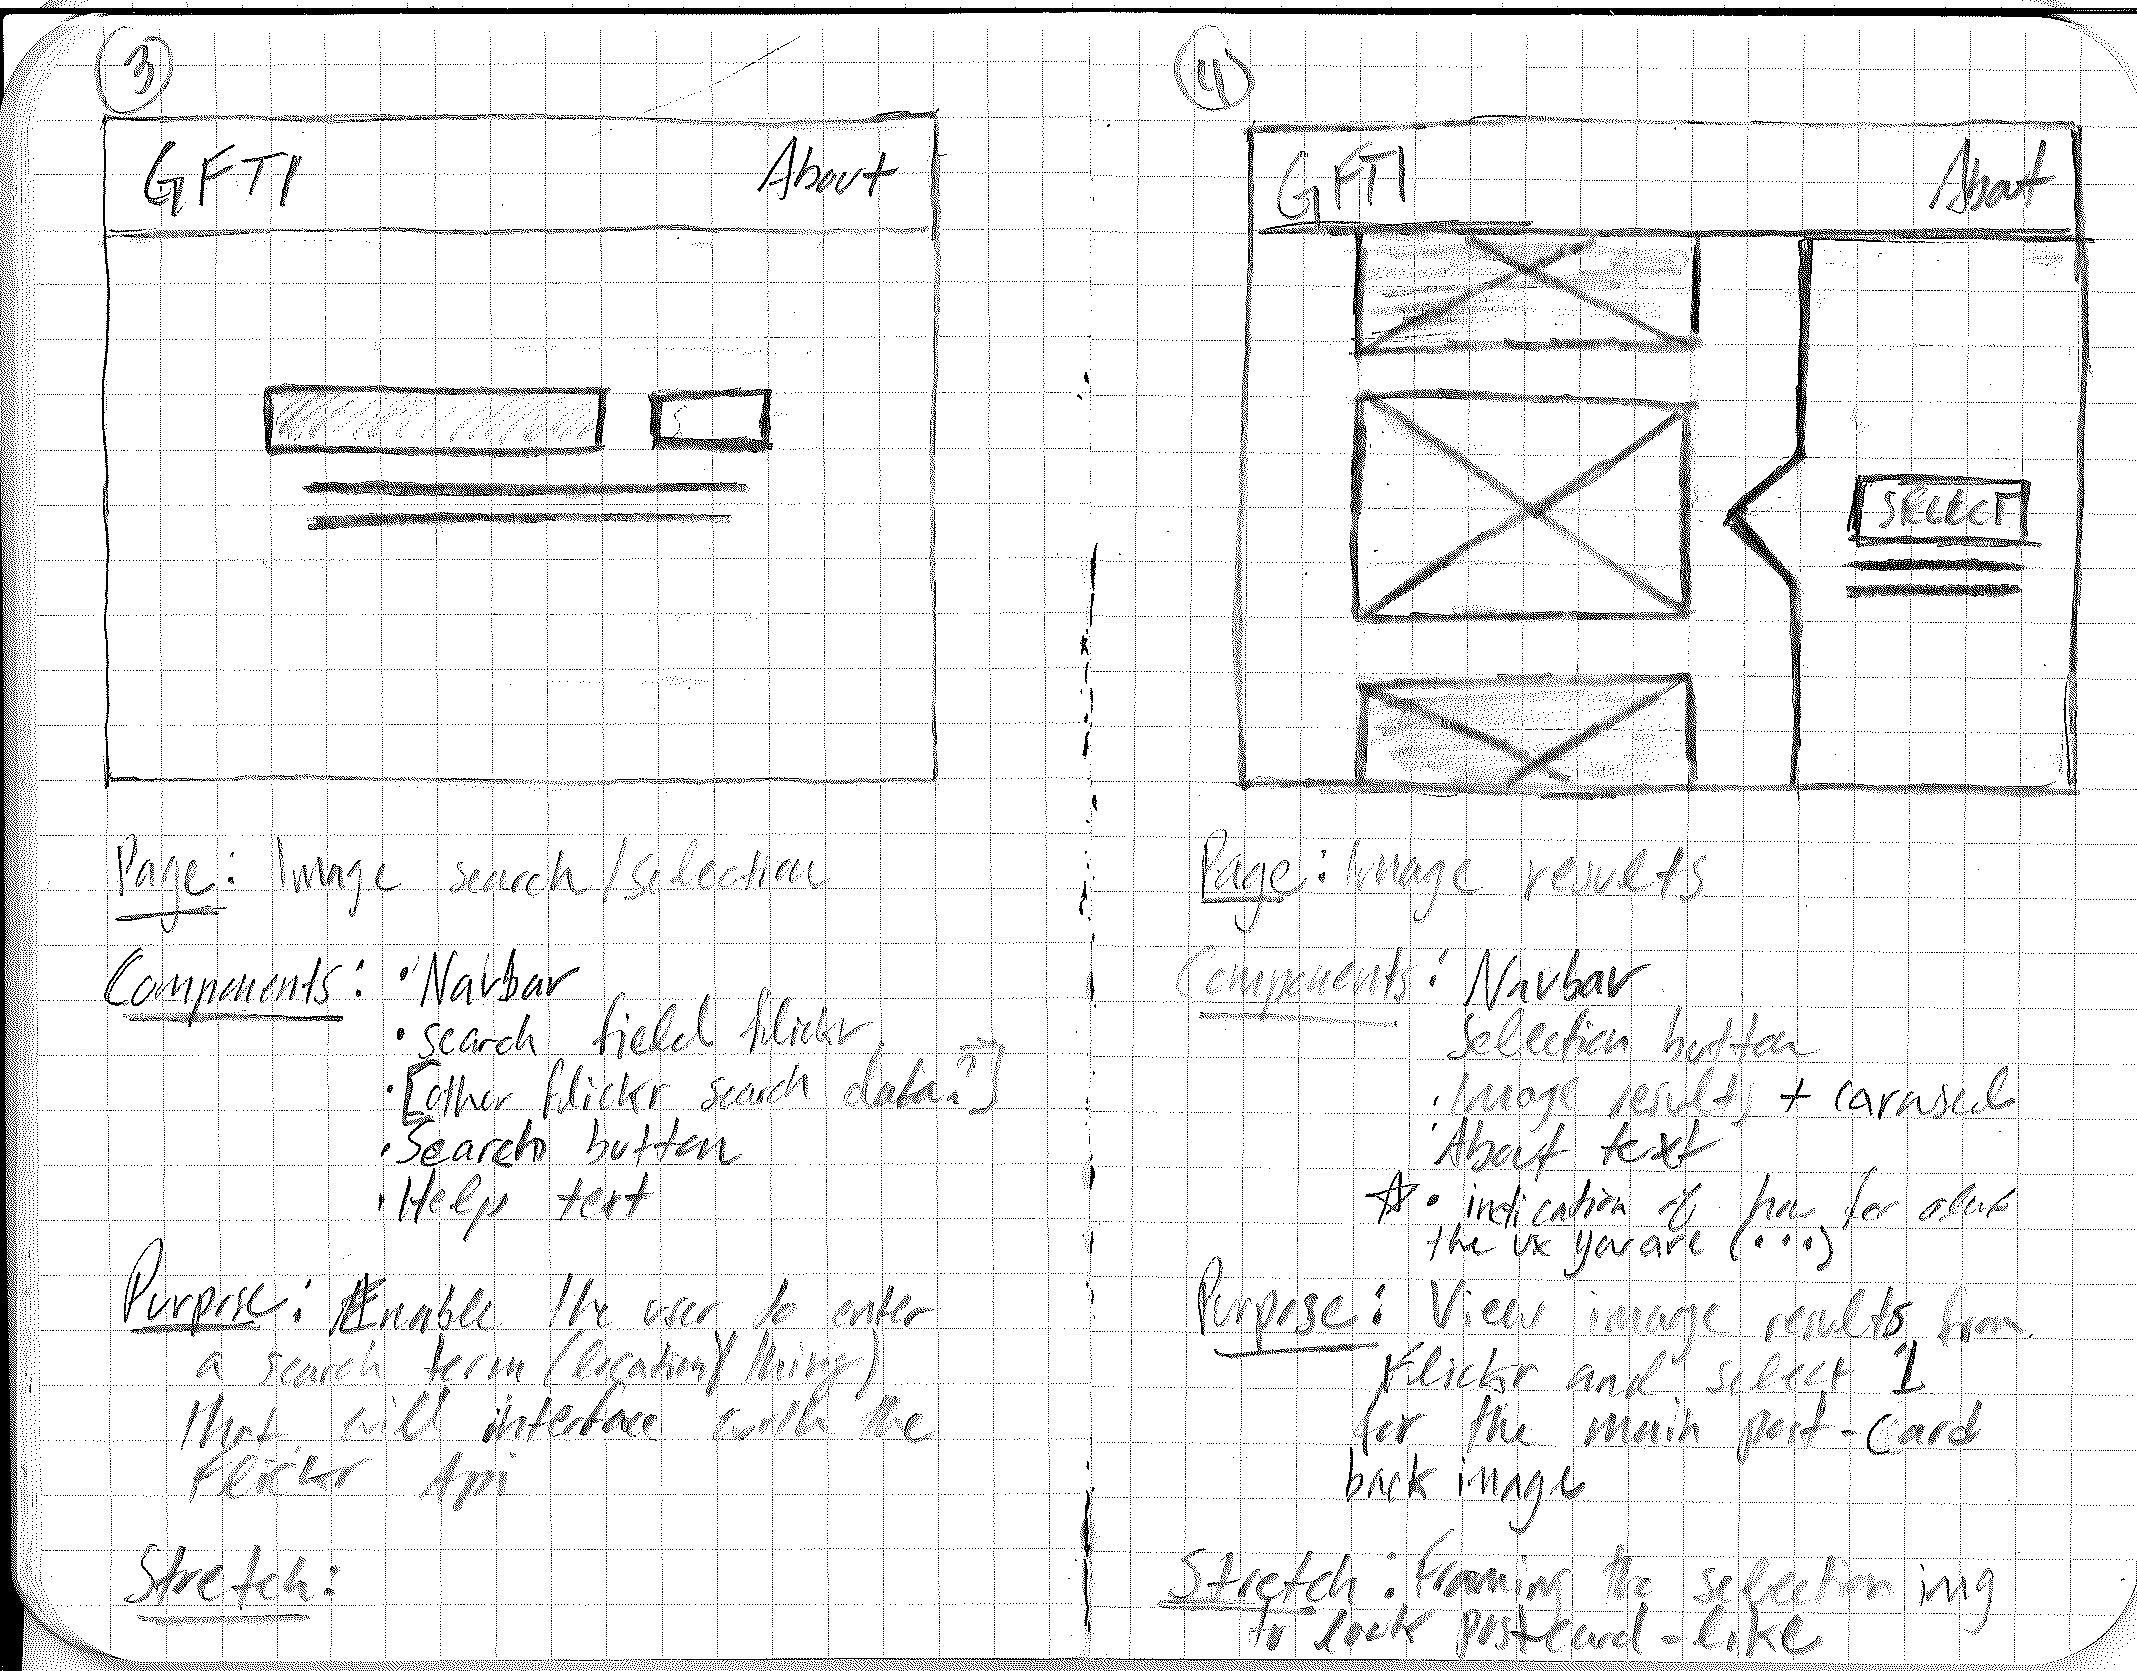 3
GFTI About
Page: Image search/selection
Components: • Navbar
• search field flickr
• [other flickr search data?]
• Search button
• Help text
Purpose: Enable the user to enter
a search term (location/thing)
that will interface with the
Flickr Api
Stretch:
4
GFTI About
SELECT
Page: Image results
Components: Navbar
Selection button
• Image results + carousel
• About text
☆ • indication of how far along
the ux you are (...)
Purpose: View image results from
Flickr and select 1
for the main post-card
back image
Stretch: Framing the selection img
to look postcard-like